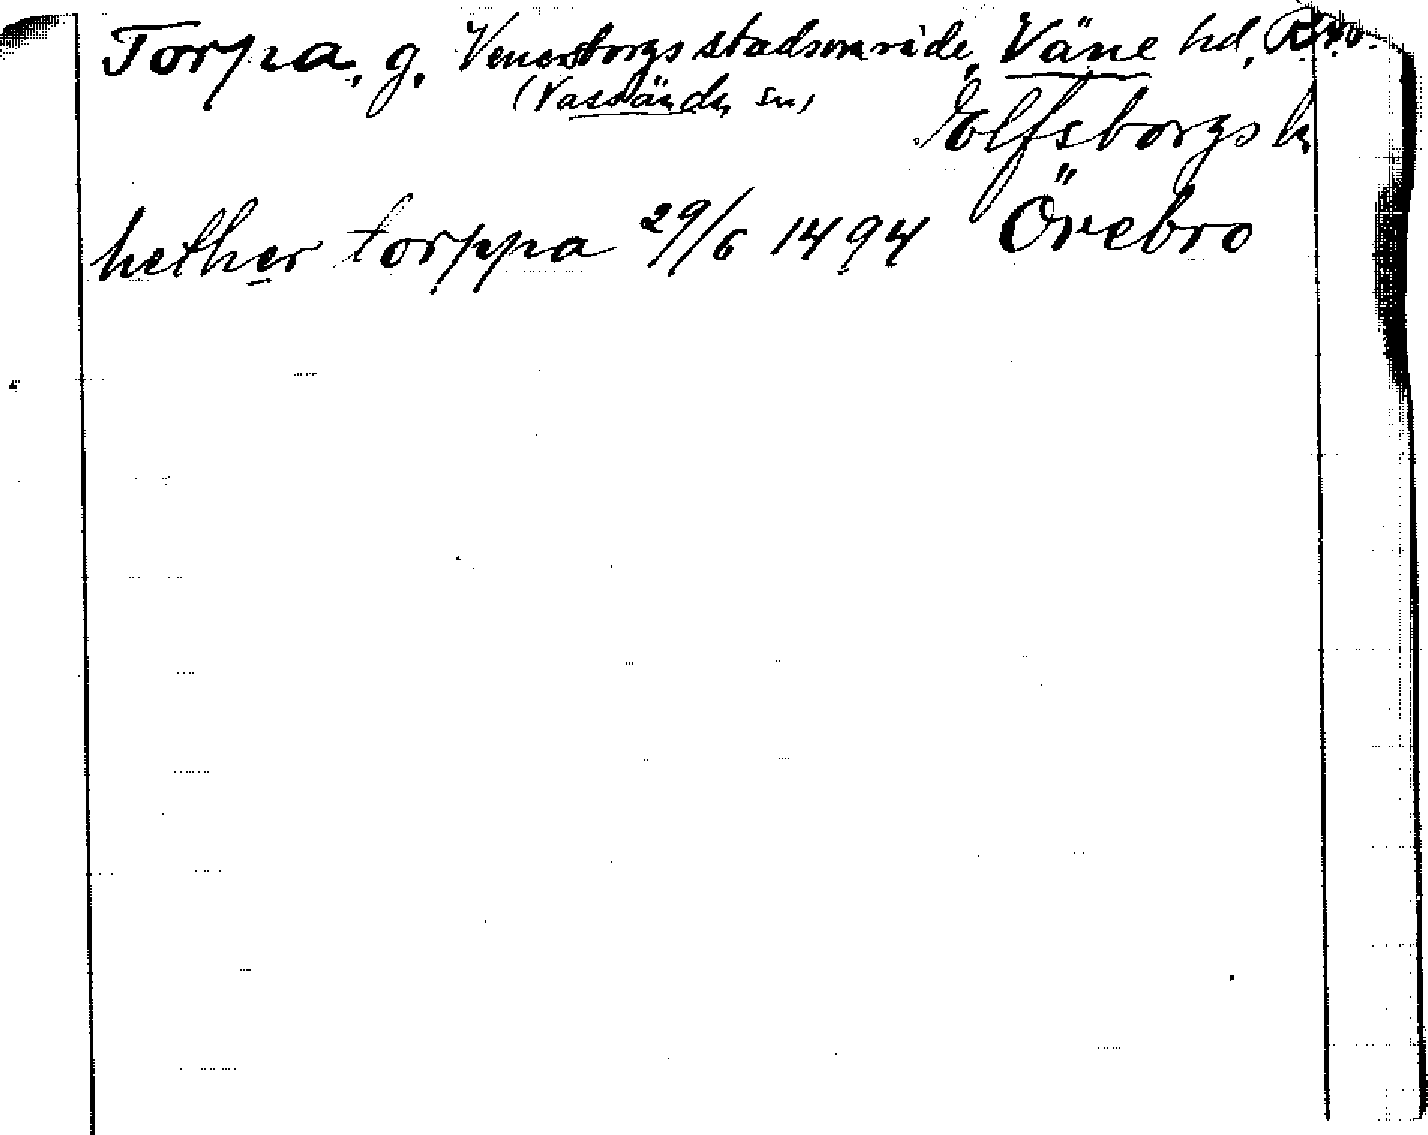 Torpa, g. Venersborgs stadsområde, Väne hd,
(Vassända sn)
Elfsborgs l.
hether torppa 29/6 1494 Örebro